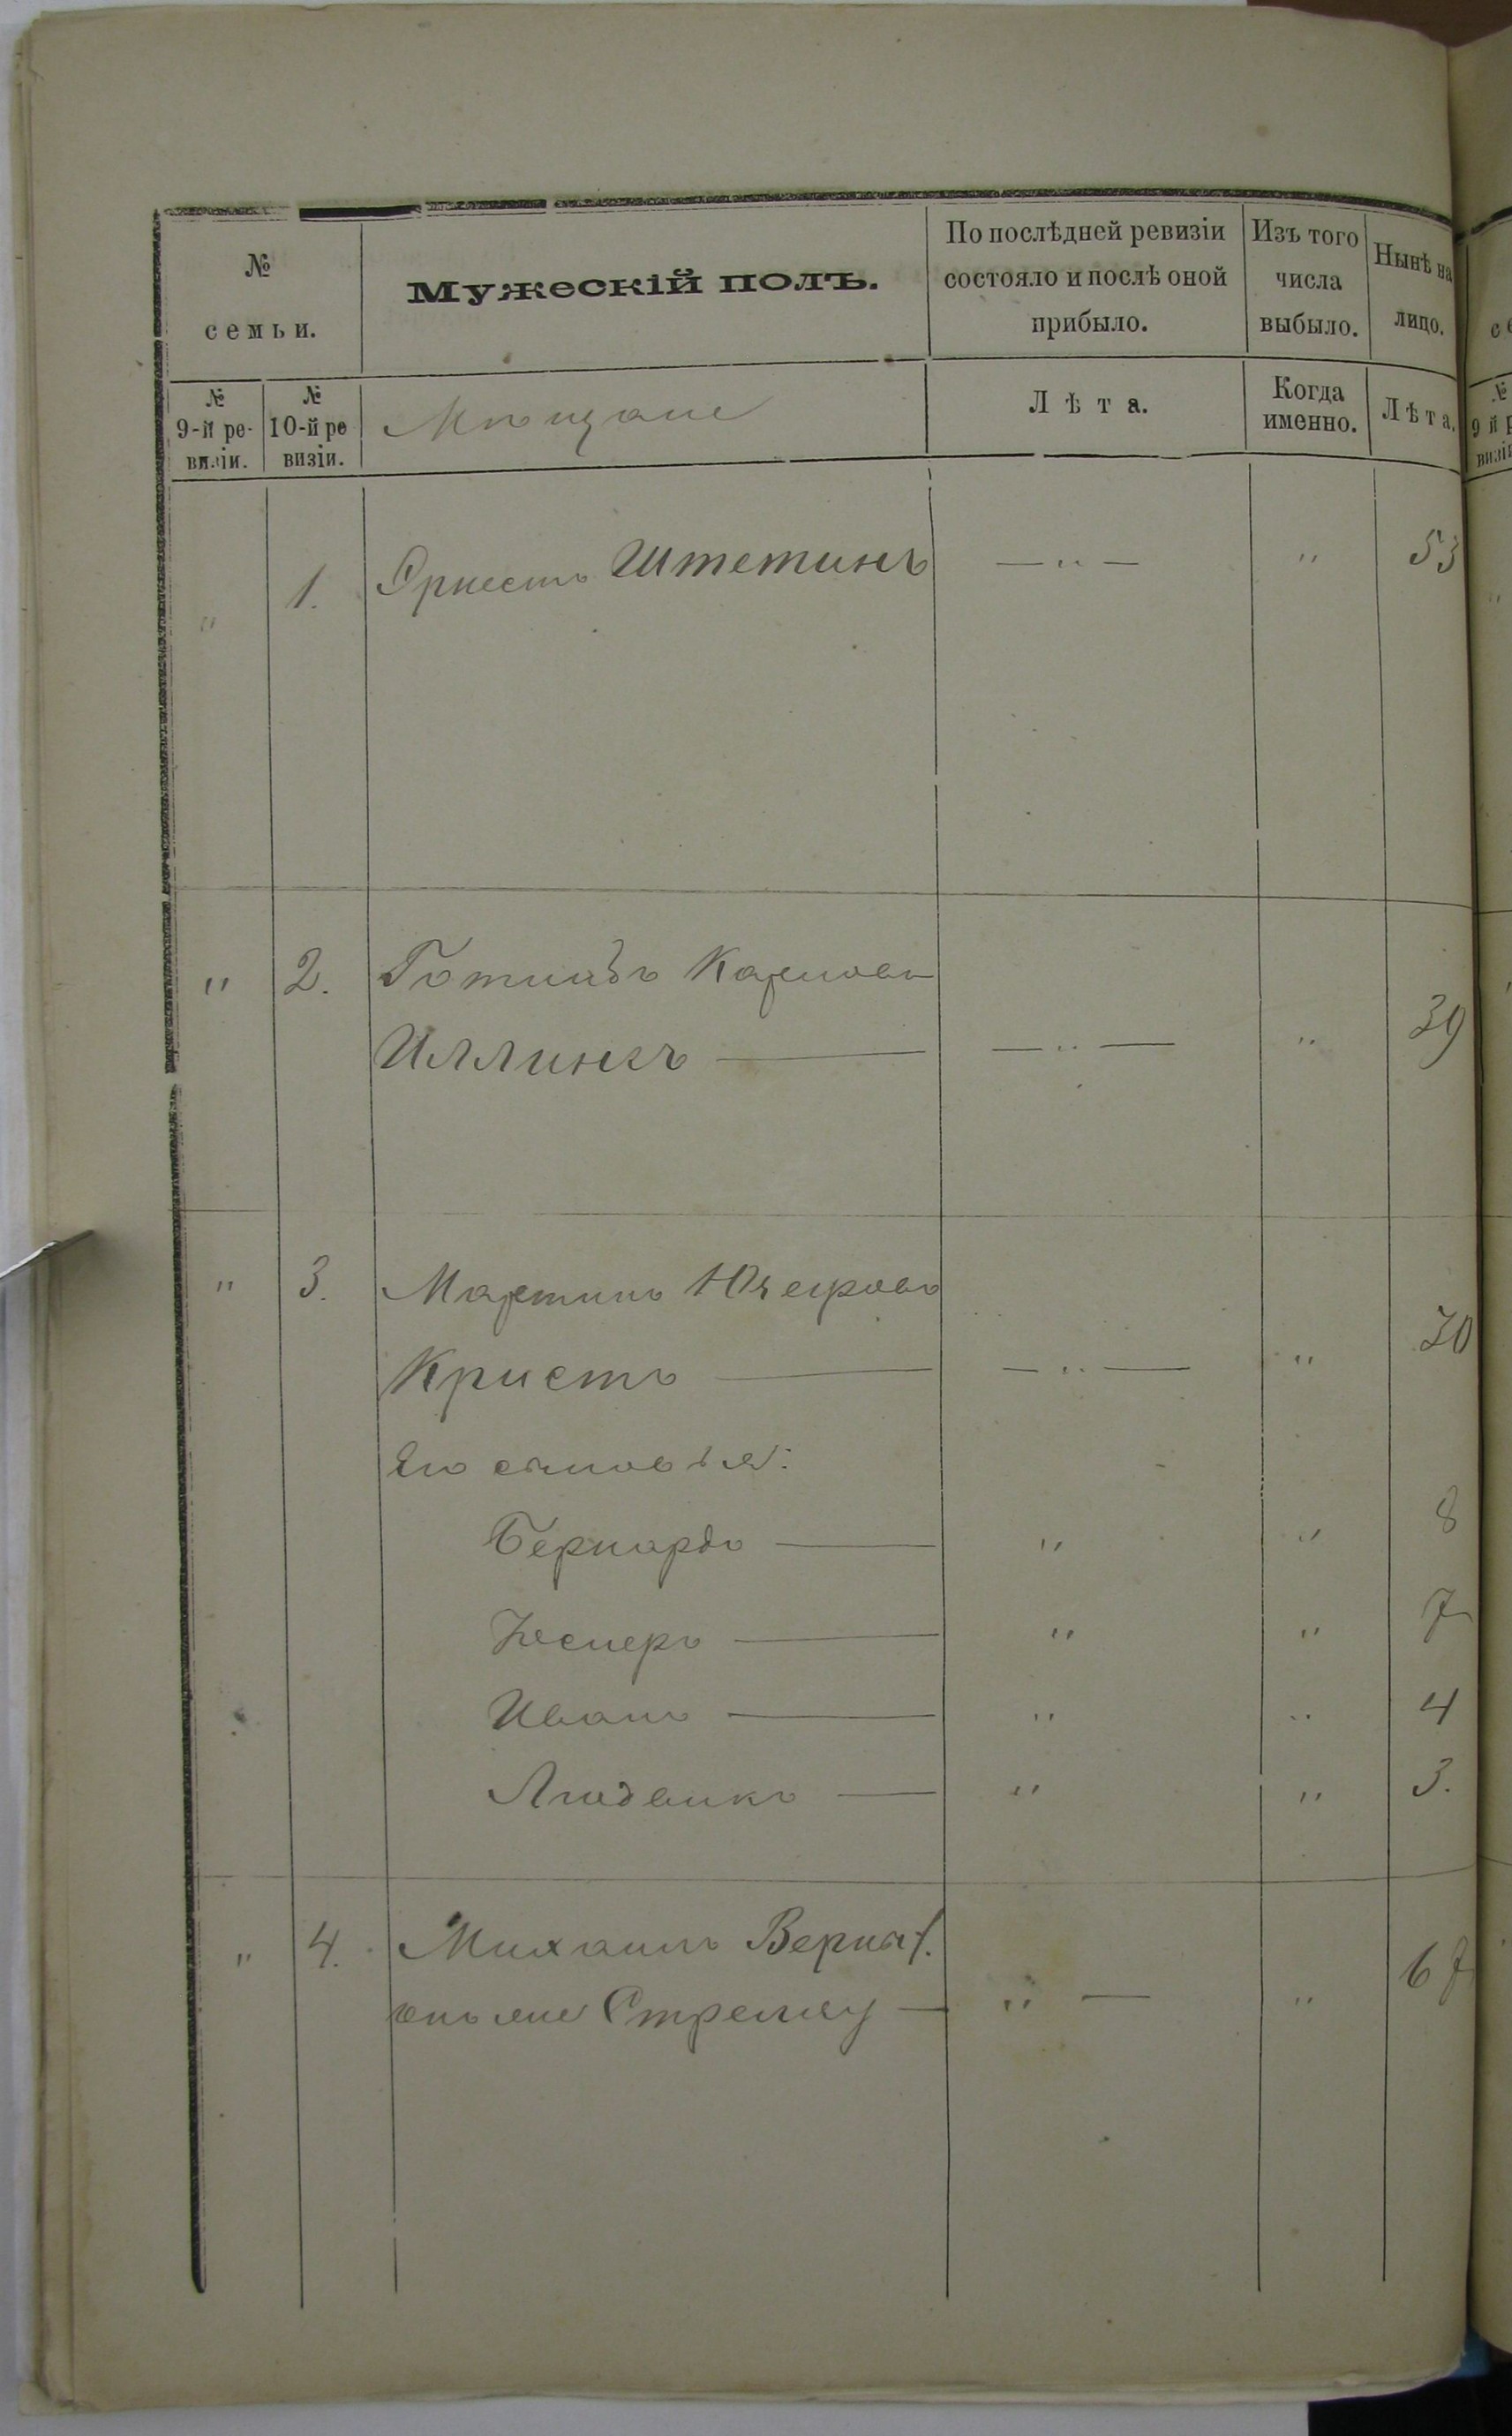 №
семьи.
Мужескій полъ.
По послѣдней ревизіи
состояло и послѣ оной
прибыло.
Изъ того
числа
выбыло.
Нынѣ на
лицо.
№
9-й ре-
визіи.
№
10-й ре
визіи.
Мѣщане
Лѣта.
Когда
именно.
Лѣта.
" 1. Эрнестъ Штетинъ — " — " 53
" 2. Готлибъ Карловъ
Иллингъ — — " — " 39
" 3. Мартинъ
Кристъ — — " — " 30
Его сыновья:
Бернардъ — " " 8
Кесперъ — " " 7
Иванъ — " " 4
Людвикъ — " " 3.
" 4. Михаилъ
Стрелау — " — " 67